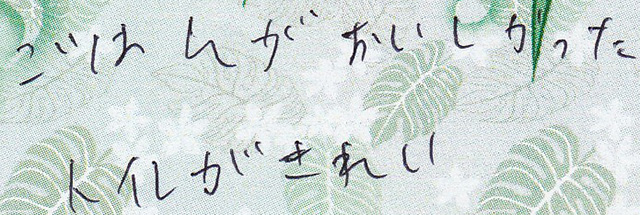 ごはんがおいしかった
トイレがきれい